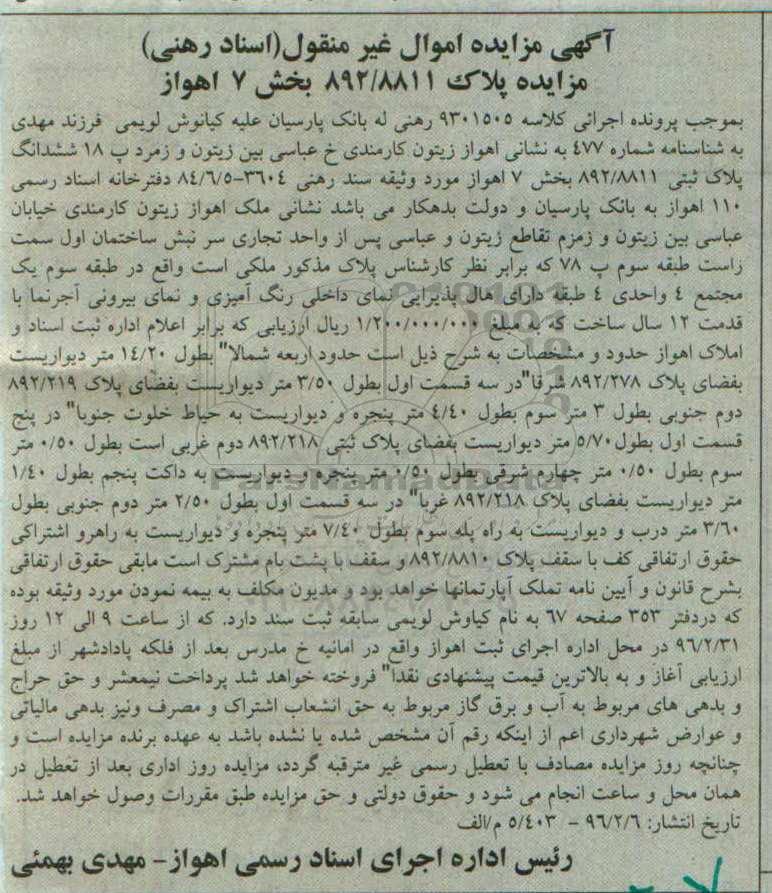 آگهی مزایده اموال غیر منقول(اسناد رهنی)
مزایده پلاک ۸۹۲/۸۸۱۱ بخش ۷ اهواز
بموجب پرونده اجرائی کلاسه ۹۳۰۱۵۰۵ رهنی له بانک پارسیان علیه کیانوش لویمی فرزند مهدی
به شناسنامه شماره ٤۷۷ به نشانی اهواز زیتون کارمندی خ عباسی بین زیتون و زمرد پ ۱۸ ششدانگ
پلاک ثبتی ۸۹۲/۸۸۱۱ بخش ۷ اهواز مورد وثیقه سند رهنی ۳٦۰٤-۸٤/٦/٥ دفترخانه اسناد رسمی
۱۱۰ اهواز به بانک پارسیان و دولت بدهکار می باشد نشانی ملک اهواز زیتون کارمندی خیابان
عباسی بین زیتون و زمزم تقاطع زیتون و عباسی پس از واحد تجاری سر نبش ساختمان اول سمت
راست طبقه سوم پ ۷۸ که برابر نظر کارشناس پلاک مذکور ملکی است واقع در طبقه سوم یک
مجتمع ٤ واحدی ٤ طبقه دارای هال پذیرایی نمای داخلی رنگ آمیزی و نمای بیرونی آجرنما با
قدمت ۱۲ سال ساخت که به مبلغ ۱/۲۰۰/۰۰۰/۰۰۰ ریال ارزیابی که برابر اعلام اداره ثبت اسناد و
املاک اهواز حدود و مشخصات به شرح ذیل است حدود اربعه شمالا" بطول ۱٤/۲۰ متر دیواریست
بفضای پلاک ۸۹۲/۲۷۸ شرقا"در سه قسمت اول بطول ۳/۵۰ متر دیواریست بفضای پلاک ۸۹۲/۲۱۹
دوم جنوبی بطول ۳ متر سوم بطول ٤/٤۰ متر پنجره و دیواریست به حیاط خلوت جنوبا" در پنج
قسمت اول بطول ۵/۷۰ متر دیواریست بفضای پلاک ثبتی ۸۹۲/۲۱۸ دوم غربی است بطول ۰/۵۰ متر
سوم بطول ۰/۵۰ متر چهارم شرقی بطول ۰/۵۰ متر پنجره و دیواریست به داکت پنجم بطول ۱/٤۰
متر دیواریست بفضای پلاک ۸۹۲/۲۱۸ غربا" در سه قسمت اول بطول ۲/۵۰ متر دوم جنوبی بطول
۳/٦۰ متر درب و دیواریست به راه پله سوم بطول ۷/٤۰ متر پنجره و دیواریست به راهرو اشتراکی
حقوق ارتفاقی کف با سقف پلاک ۸۹۲/۸۸۱۰ و سقف با پشت بام مشترک است مابقی حقوق ارتفاقی
بشرح قانون و آیین نامه تملک آپارتمانها خواهد بود و مدیون مکلف به بیمه نمودن مورد وثیقه بوده
که دردفتر ۳۵۳ صفحه ٦۷ به نام کیاوش لویمی سابقه ثبت سند دارد. که از ساعت ۹ الی ۱۲ روز
۹٦/۲/۳۱ در محل اداره اجرای ثبت اهواز واقع در امانیه خ مدرس بعد از فلکه پادادشهر از مبلغ
ارزیابی آغاز و به بالاترین قیمت پیشنهادی نقدا" فروخته خواهد شد پرداخت نیمعشر و حق حراج
و بدهی های مربوط به آب و برق گاز مربوط به حق انشعاب اشتراک و مصرف ونیز بدهی مالیاتی
و عوارض شهرداری اعم از اینکه رقم آن مشخص شده یا نشده باشد به عهده برنده مزایده است و
چنانچه روز مزایده مصادف با تعطیل رسمی غیر مترقبه گردد، مزایده روز اداری بعد از تعطیل در
همان محل و ساعت انجام می شود و حقوق دولتی و حق مزایده طبق مقررات وصول خواهد شد.
تاریخ انتشار: ۹٦/۲/٦ - ۵/٤۰۳ م/الف
رئیس اداره اجرای اسناد رسمی اهواز- مهدی بهمئی